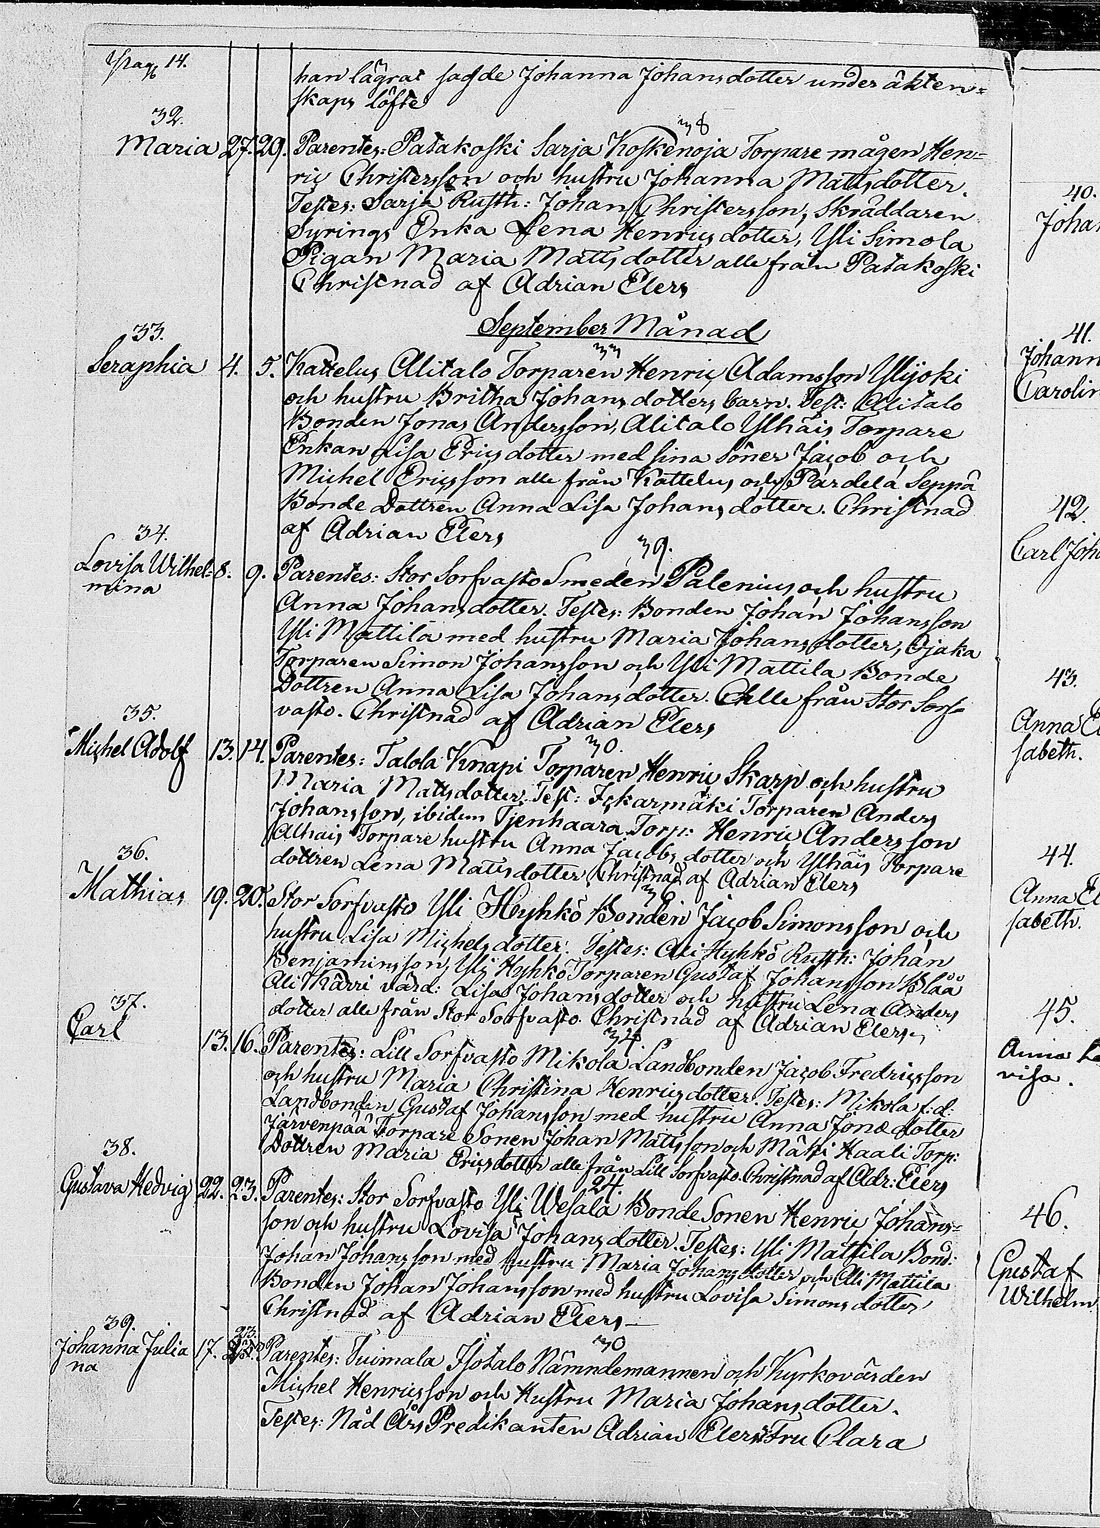 han lägrat sagde Johanna Johansdotter under äkten=
skaps löfte
32.
Maria 27. 29. Parentes: Patakoski Sarja Koskenoja Torpare mågen Hen=
38
ric Christersson och hustru Johanna Mattsdotter.
Testes: Sarja Rusth: Johan Christersson, Skräddaren
Syrings Enka Lena Henricsdotter, Yli Simola
Pigan Maria Mattsdotter alle från Patakoski
Christnad af Adrian Elers
September Månad
33.
Seraphia 4. 5. Kattelus Alitalo Torparen Henric Adamsson Ylijoki
33
och hustru Britha Johansdotters barn. Test: Alitalo
Bonden Jonas Andersson, Alitalo Ylhäis Torpare
Enkan Lisa Ericsdotter med sina Söner Jacob och
Michel Ericsson alle från Kattelus och Pardela Seppä
Bonde Dottren Anna Lisa Johansdotter. Christnad
af Adrian Elers
34.
Lovisa Wilhel= 8. 9. Parentes: Stor Sorfvasto Smeden Palenius och hustru
mina
39.
Anna Johansdotter. Testes: Bonden Johan Johansson
Yli Mattila med hustru Maria Johansdotter, Ojaka
Torparen Simon Johansson och Yli Mattila Bonde
Dottren Anna Lisa Johansdotter. Alle från Stor Sorf
vasto. Christnad af Adrian Elers
35.
Michel Adolf 13. 14. Parentes: Talola Knapi Torparen Henric Skarp och hustru
30.
Maria Mattsdotter. Test: Iskarmäki Torparen Anders
Johansson, ibidem Tjenhaara Torp: Henric Andersson
Alhais Torpare hustru Anna Jacobsdotter och Ylhäis Torpare
dottren Lena Matsdotter Christnad af Adrian Elers
36.
Mathias 19. 20. Stor Sorfvasto Yli Hyhkö Bonden Jacob Simonsson och
36
hustru Lisa Michelsdotter. Testes: Ali Hyhkö Rusth: Johan
Benjaminsson, Yli Hyhkö Torparen Gustaf Johansson Blåå
Ali Kärri värd: Lisa Johansdotter och hustru Lena Anders
dotter alle från Stor Sorfvasto. Christnad af Adrian Elers
37.
Carl 13. 16. Parentes: Lill Sorfvasto Mikola Landbonden Jacob Fredricsson
34
och hustru Maria Christina Henricsdotter. Testes: Mikola f:d:
Landbonden Gustaf Johansson med hustru Anna Jonædotter
Järvenpää Torpare Sonen Johan Mattsson och Mäki Haali Torp:
Dottren Maria Ericsdotter alle från Lill Sorfvasto. Christnad af Adr: Elers
38.
Gustava Hedvig 22. 23. Parentes: Stor Sorfvasto Yli Wesala Bonde Sonen Henric Johans=
24.
son och hustru Lovisa Johansdotter. Testes: Yli Mattila Bond:
Johan Johansson med hustru Maria Johansdotter och Ali Mattila
Bonden Johan Johansson med hustru Lovisa Simonsdotter
Christnad af Adrian Elers
39.
Johanna Julia 17. 23. Parentes: Tuimala Isotalo Nämndemannen och Kyrkovärden
na
30
Michel Henricsson och Hustru Maria Johansdotter.
Testes: Nåd Års Predikanten Adrian Elers Fru Clara
40.
41.
42.
43.
44.
45.
46.
Gustaf
Wilhelm